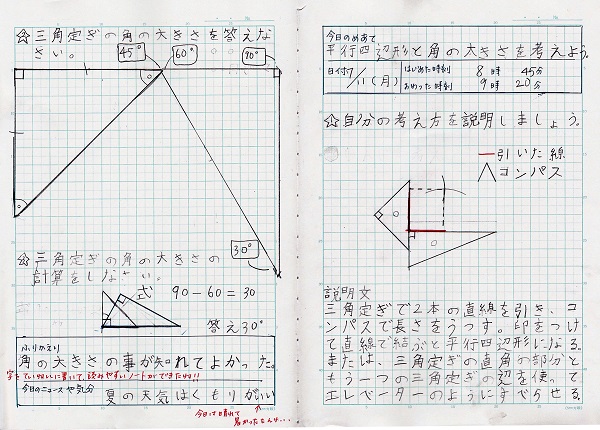 ☆三角定ぎの角の大きさを答えな
さい。
45° 60° 90°
30°
☆三角定ぎの角の大きさの
計算をしなさい。
式 90-60=30
答え30°
ふりかえり
角の大きさの事が知れてよかった。
字もていねいに書いて、読みやすいノートができたね!!
今日のニュースや気分
夏の天気はくもりがいい
今日は晴れて
今日のめあて
平行四辺形と角の大きさを考えよう。
日付7/11(月)
はじめた時刻 8時45分
おわった時刻 9時20分
☆自分の考え方を説明しましょう。
引いた線
コンパス
説明文
三角定ぎで2本の直線を引き、コ
ンパスで長さをうつす。印をつけ
て直線で結ぶと平行四辺形になる
または、三角定ぎの直角の部分と
もう一つの三角定ぎの辺を使って
エレベーターのようにすべらせる。